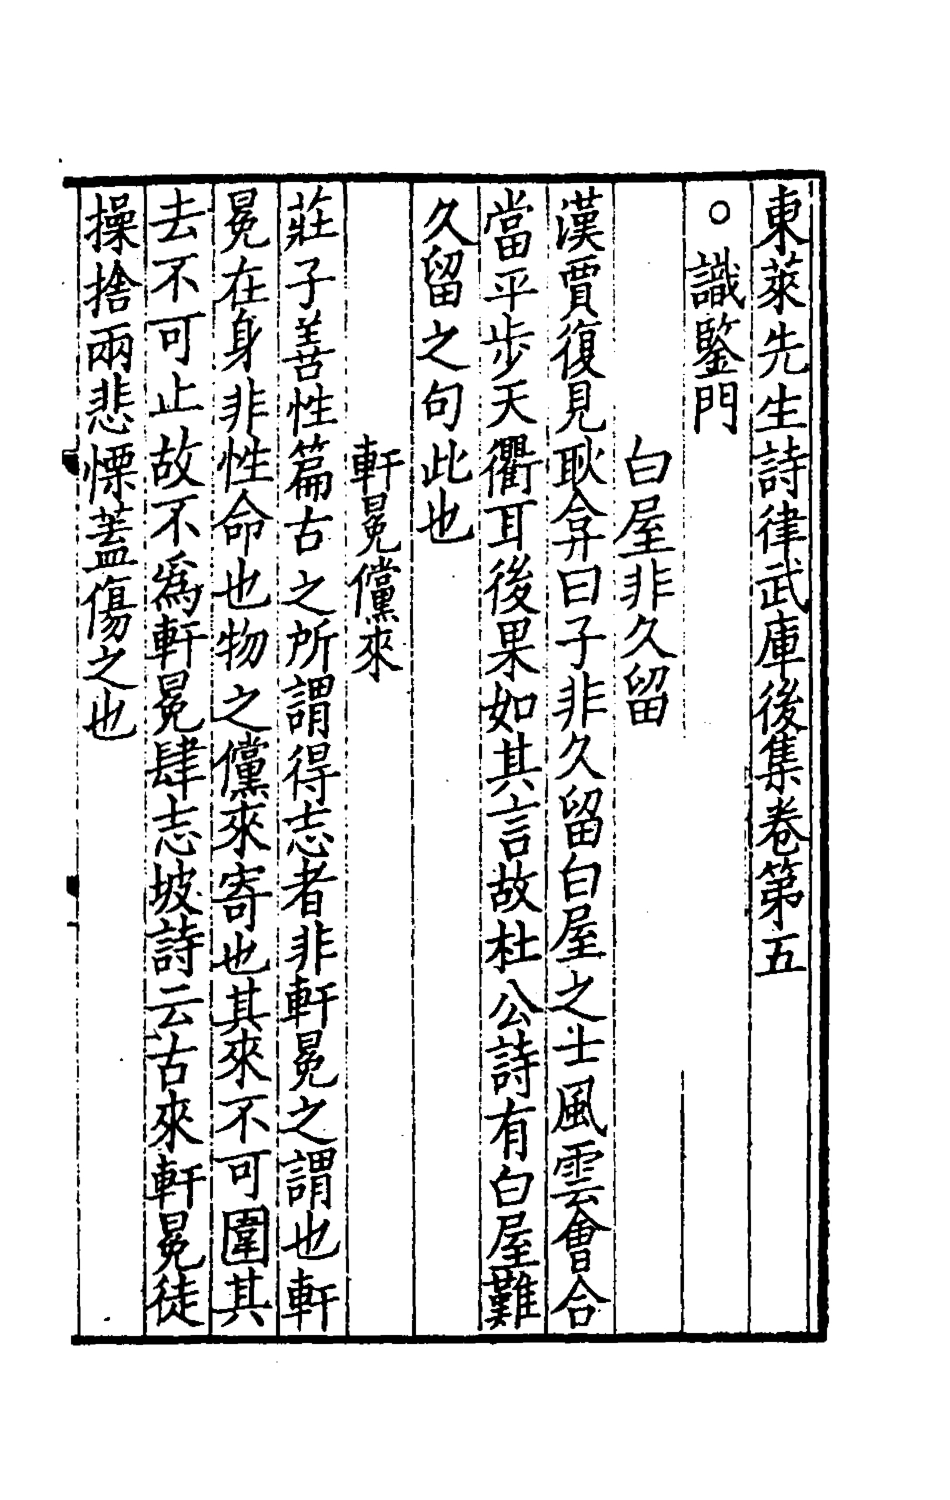 東萊先生詩律武庫後集卷第五
○識鍳門
白屋非久留
漢賈復見耿弇曰子非久留白屋之士風雲會合
當平步天衢耳後果如其言故杜公詩有白屋難
久留之句此也
軒冕儻來
莊子善性篇古之所謂得志者非軒冕之謂也軒
冕在身非性命也物之儻來寄也其來不可圍其
去不可止故不爲軒冕肆志坡詩云古來軒冕徒
操捨兩悲慄蓋傷之也